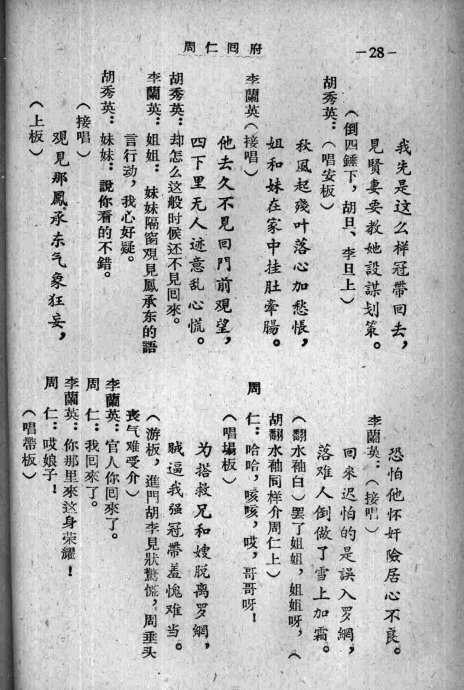 周仁囘府
—28—
我先是这么样冠帶回去，
見賢妻要教她設謀划策。
（倒四錘下，胡旦、李旦上）
胡秀英：（唱安板）
秋風起殘叶落心加愁悵，
姐和妹在家中挂肚牽腸。
李蘭英（接唱）
他去久不見回門前观望，
四下里无人迹意乱心慌。
胡秀英：却怎么这般时候还不見回來。
李蘭英：姐姐：妹妹隔窗观見鳳承东的語
言行动，我心好疑。
胡秀英：妹妹：說你看的不錯。
（接唱）
观見那鳳承东气象狂妄，
（上板）
恐怕他怀奸險居心不良。
李蘭英：（接唱）
回來迟怕的是誤入罗網，
落难人倒做了雪上加霜。
（翻水秞白）罢了姐姐，姐姐呀，（
胡翻水秞同样介周仁上）
周　仁：哈哈，咳咳，哎，哥哥呀！
（唱塌板）
为搭救兄和嫂脱离罗網，
賊逼我强冠帶羞愧难当。
（游板，進門胡李見狀驚慌，周垂头
丧气难受介）
李蘭英：官人你回來了。
周　仁：我回來了。
李蘭英：你那里來这身荣耀！
周　仁：哎娘子！
（唱帶板）